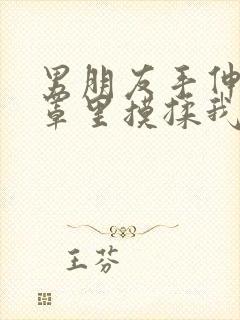 男朋友手伸
罩里摸揉我
王芬